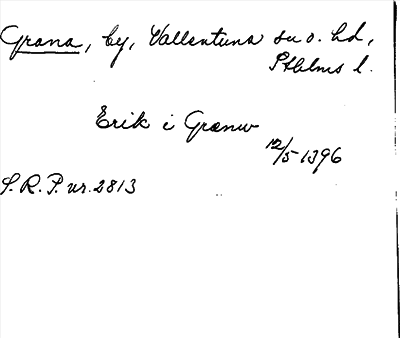 Grana, by, Vallentuna sn o. hd,
Sthlms l.
Erik i Granw
12/5 1396
S.R.P. nr. 2813